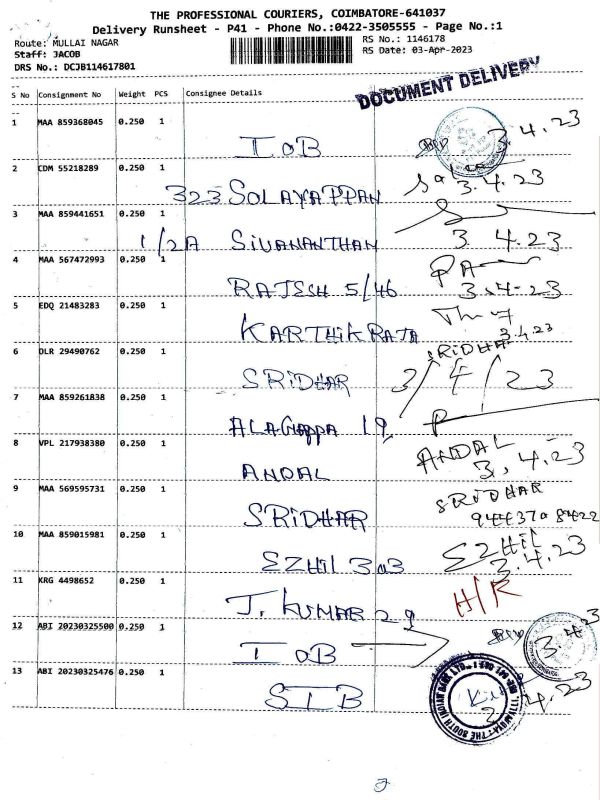 THE PROFESSIONAL COURIERS, COIMBATORE-641037
Delivery Runsheet - P41 - Phone No.:0422-3505555 - Page No.:1
Route: MULLAI NAGAR
RS No.: 1146178
Staff: JACOB
RS Date: 03-Apr-2023
DRS No.: DCJB114617801
DOCUMENT DELIVERY
S No Consignment No Weight PCS Consignee Details
1 MAA 859368045 0.250 1
IOB 3.4.23
2 CDM 55218289 0.250 1
323 SOLAYAPPAN 3.4.23
3 MAA 859441651 0.250 1
1/2A SIVANANTHAN 3 4.23
4 MAA 567472993 0.250 1
RAJESH 5/46 3.4-23
5 EDQ 21483283 0.250 1
KARTHIK RAJA 3.4.23
6 DLR 29490762 0.250 1 SRIDHAR
SRIDHAR 3/4/23
7 MAA 859261838 0.250 1
ALAGAPPA 19
8 VPL 217938380 0.250 1 ANDAL
ANDAL 3.4.23
9 MAA 569595731 0.250 1 SRIDHAR
SRIDHAR 944370 8422
10 MAA 859015981 0.250 1 EZHIL
EZHIL 303 3.4.23
11 KRG 4498652 0.250 1 H/R
J. KUMAR 29
12 ABI 20230325500 0.250 1
IOB 3.4.23
13 ABI 20230325476 0.250 1
SIB 3.4.23
THE SOUTH INDIAN BANK LTD.